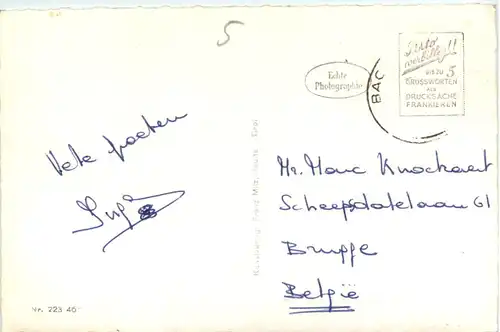 5
Echte
Photographie
BAC
BIS ZU 5
GRUSSWORTEN
ALS
DRUCKSACHE
FRANKIEREN
Vele groeten
Mr. Marc Knockaert
Scheepsdalelaan 61
Brugge
België
Nr. 223 40